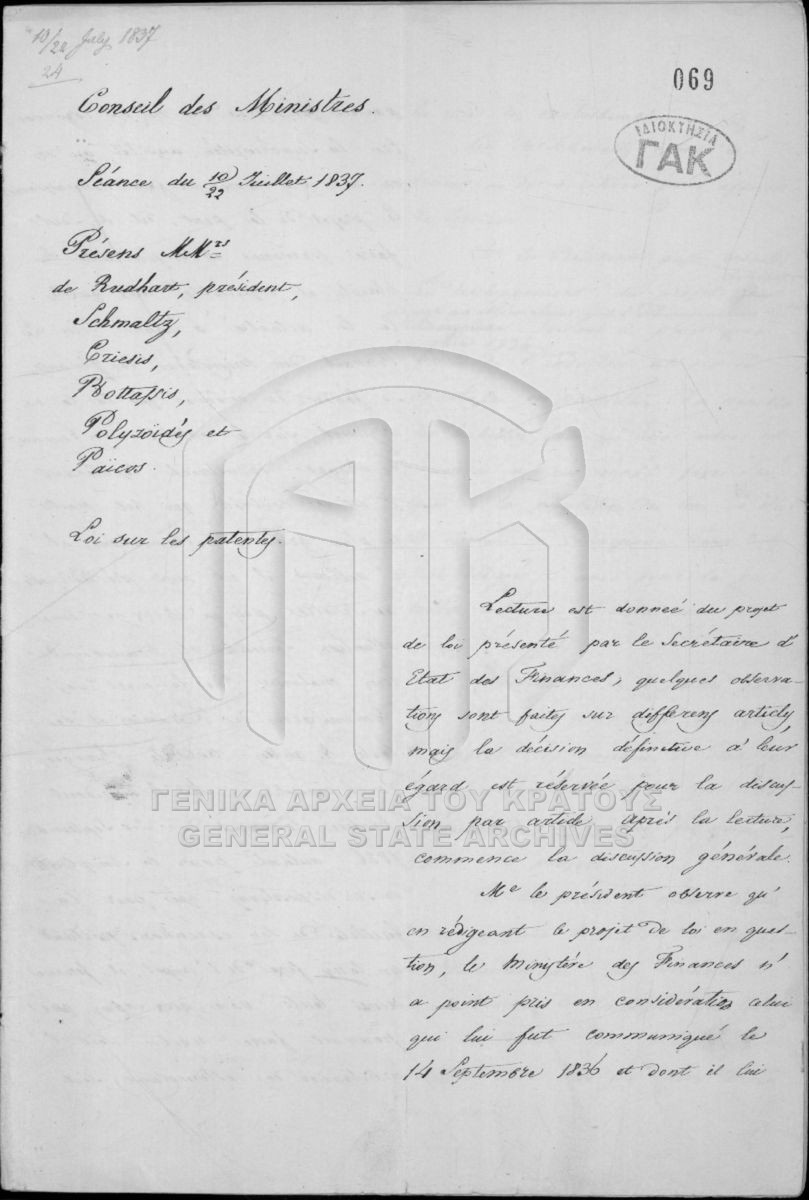 10/22 July 1837
24
069
ΙΔΙΟΚΤΗΣΙΑ
ΓΑΚ
Conseil des Ministres.
Séance du 10/22 Juillet 1837.
Présens MMrs
de Rudhart, président,
Schmaltz,
Criesis,
Bottassis,
Polyzoïdés et
Païcos.
Loi sur les patentes.
Lecture est donnée du projet
de loi présenté par le Secrétaire d'
Etat des Finances, quelques observa-
tions sont faites sur différens articles
mais la décision définitive à leur
égard est réservée pour la discus-
sion par article après la lecture,
commence la discussion générale.
Mr le président observe qu'
en rédigeant le projet de loi en ques-
tion, le Ministère des Finances n'
a point pris en considération celui
qui lui fut communiqué le
14 Septembre 1836 et dont il lui
ΓΕΝΙΚΑ ΑΡΧΕΙΑ ΤΟΥ ΚΡΑΤΟΥΣ
GENERAL STATE ARCHIVES